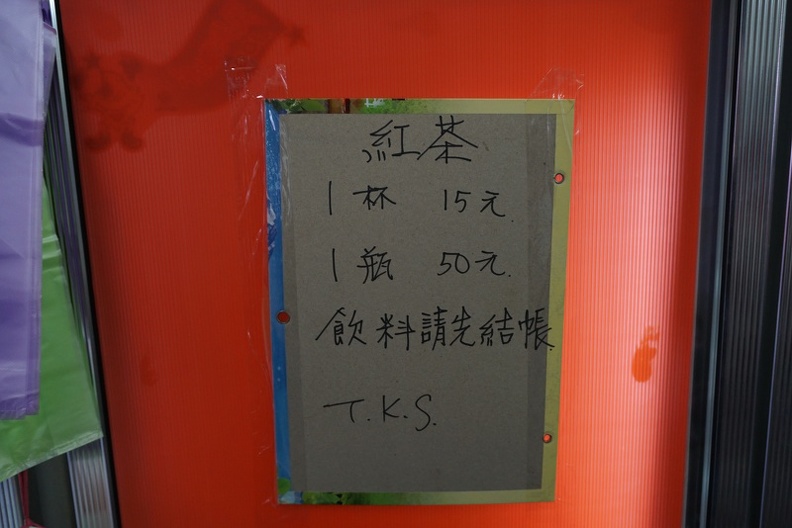 紅茶
1杯 15元.
1瓶 50元.
飲料請先結帳
T.K.S.